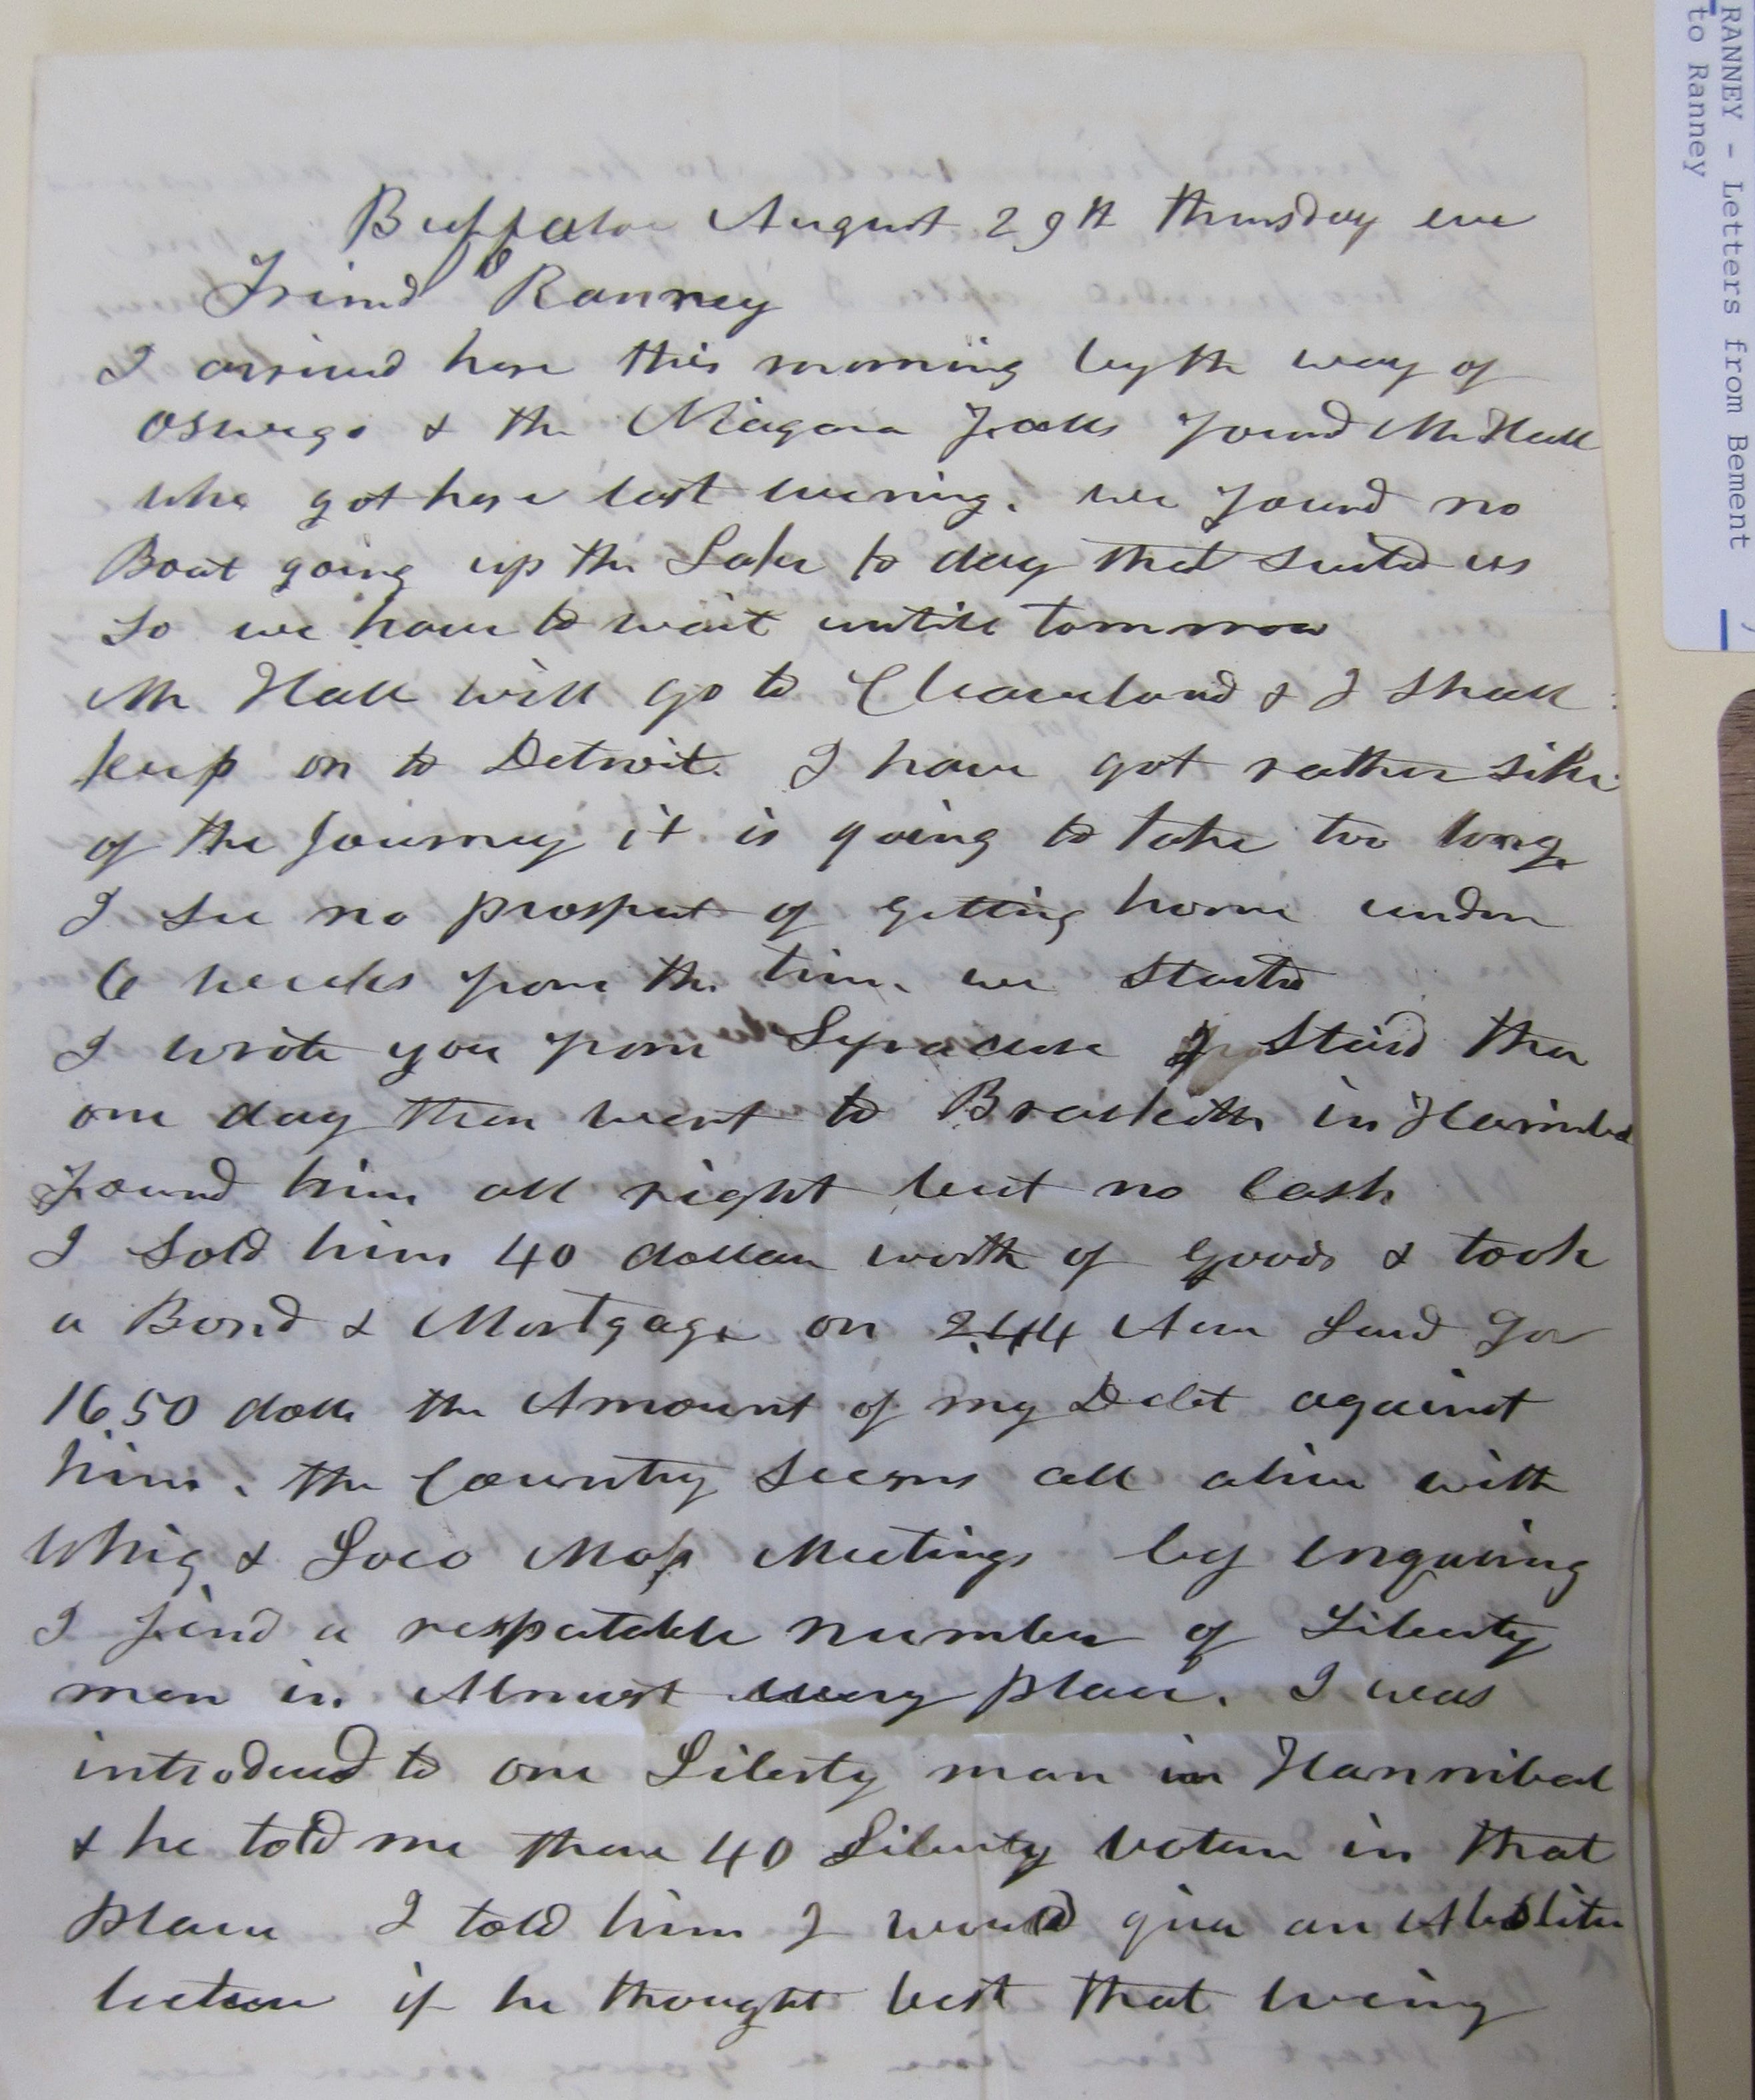 RANNEY - Letters from Bement
to Ranney
Buffalo August 29th Thursday eve
Friend Ranney
I arrived here this morning by the way of
Oswego & the Niagara Falls found Mr Hall
who got here last evening. we found no
Boat going up the Lake to day that suited us
so we have to wait untill tommrow
Mr Hall will go to Cleaveland & I shall
keep on to Detroit. I have got rather sike
of the Journey it is going to take too long
I see no prospect of getting home under
6 weeks from the time we started
I wrote you from Syracuse I staid there
one day then went to in
Found him all right but no Cash
I Sold him 40 dollars worth of Goods & took
a Bond & Mortgage on 244 Acres Land for
1650 dolls the Amount of my Debt against
him. the Country seems all alive with
Whig & Loco Mass Meetings by enquiring
I find a respectable number of Liberty
men in Almost every place. I was
introduced to one Liberty man in Hannibal
& he told me there 40 Liberty voters in that
place I told him I would give an Abolition
lecture if he thought best that evening